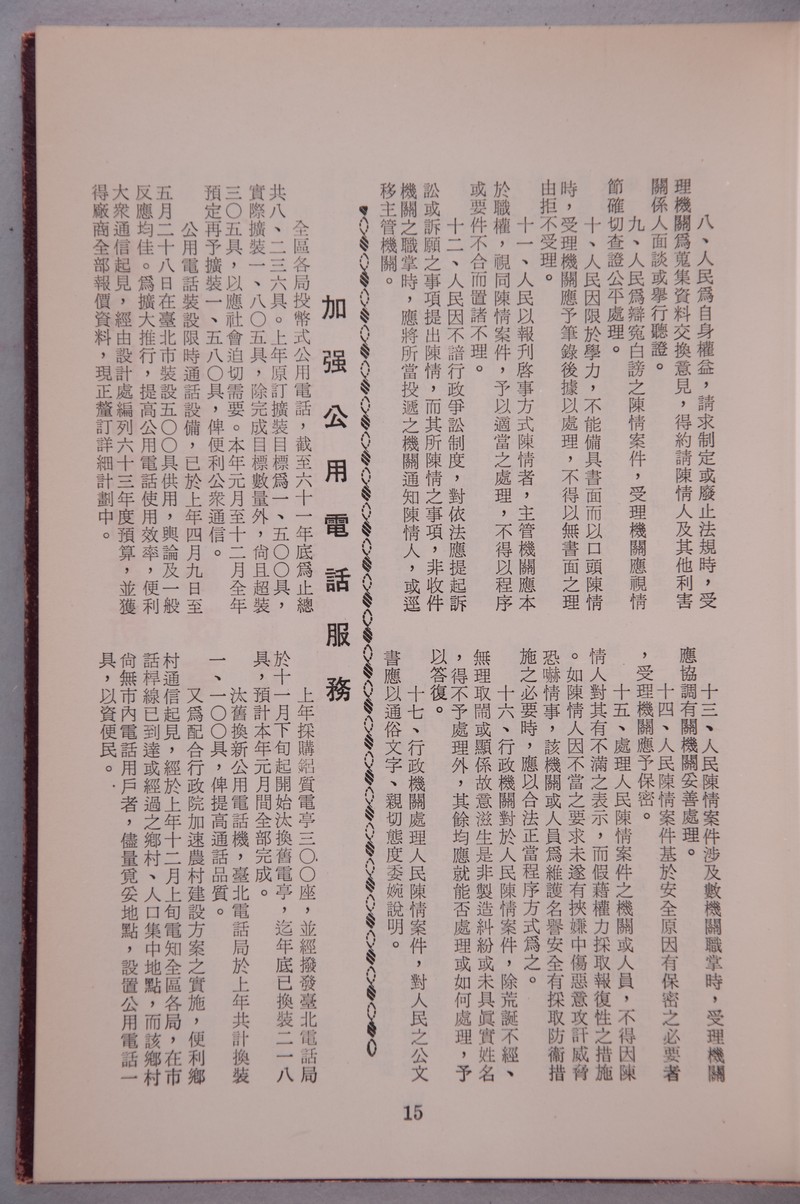 八、人民爲自身權益，請求制定或廢止法規時，受
理機關爲蒐集資料交換意見，得約請陳情人及其他利害
關係人面談或舉行聽證。
九、人民爲辯寃白謗之陳情案件，受理機關應視情
節確切查證公平處理。
十、人民因限於學力，不能備具書面而以口頭陳情
時，受理機關應予筆錄後據以處理，不得以無書面之理
由拒不受理。
十一、人民以報刋啓事方式陳情者，主管機關應本
於職權，視同陳情案件，予以適當之處理，不得以程序
或要件不合而置諸不理。
十二、人民因不諳行政爭訟制度，對依法應提起訴
訟或訴願之事項提出陳情，而其所陳情之事項，非收件
機關之職掌時，應將所當投遞之機關通知陳情人，或逕
移主管機關。
十三、人民陳情案件涉及數機關職掌時，受理機關
應協調有關機關妥善處理。
十四、人民陳情案件基於安全原因有保密之必要者
，受理機關應予保密。
十五、處理人民陳情案件之機關或人員，不得因陳
情人對其有不滿之表示，而假藉權力採取報復性之措施
。如陳情人因不當之要求未遂有挾嫌中傷惡意攻訐威脅
恐嚇情事，該機關或人員爲維護名譽安全有採取防衞措
施之必要時，應以合法正當程序方式爲之。
十六、行政機關對於人民陳情案件，除荒誕不經、
無理取鬧或顯係故意滋生是非製造糾紛或未具眞實姓名
，得不予處理外，其餘均應就能否處理或如何處理，予
以答復。
十七、行政機關處理人民陳情案件，對人民之公文
書應以通俗文字、親切態度委婉說明。
加强公用電話服務
全區各局投幣式公用電話，截至六十一年底爲止總
共八、二三六具。上年原訂擴裝目標爲一、五〇〇具，
實際擴裝一、八〇五具，除完成目標數量外，尙且超裝
三〇五具，以應社會迫切需要。本年元月至十二月全年
預定再予擴裝一、五八〇具，俾便利公衆通信。
公用電話裝設限時通話設備，已於上年四月九日至
五月二十八日在臺北市裝設五〇〇具供用，輿論及一般
反應均佳。爲擴大推行，提高公用電話使用效率，便利
大衆通信起見，經由設計處編列六十三年度預算，並獲
得廠商全部報價資料，現正釐訂詳細計劃中。
上年採購鋁質電亭三〇〇座，並經撥發臺北電話局
於十一月下旬起開始汰換舊電亭，迄年底已換裝二一八
具，預計本年元月間全部完成。
汰舊換新公用電話機，臺北電話局於上年共計換裝
一、一〇〇具，俾提高通話品質。
又爲配合行政院加速農村建設方案之實施，便利鄉
村通信起見，經於上年十二月上旬電知全區各局，在市
話桿線已到達或經過之鄉村、人口集中地點，而該鄉村
尙無市內電話用戶者，儘量覓妥地點，設置公用電話一
具，以資便民。
15